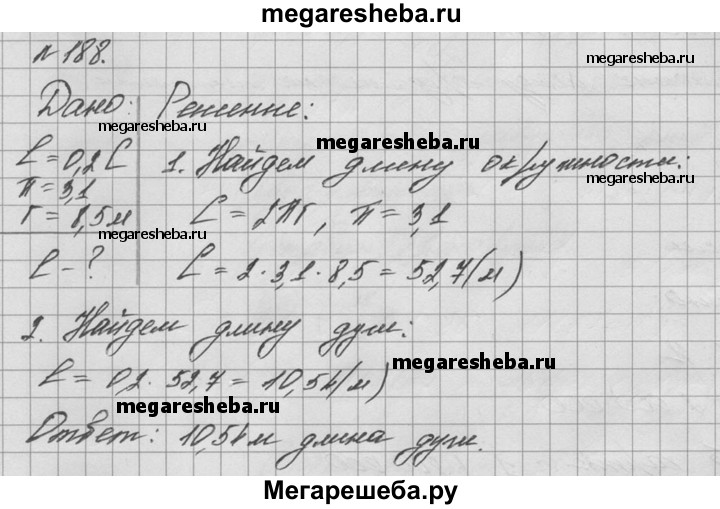 megaresheba.ru
№ 188.
megaresheba.ru
Дано: Решение:
megaresheba.ru
megaresheba.ru
ℓ = 0,2 C 1. Найдем длину окружности:
π = 3,1
megaresheba.ru
r = 8,5 м C = 2πr, π = 3,1
megaresheba.ru
ℓ - ? C = 2 · 3,1 · 8,5 = 52,7 (м)
2. Найдем длину дуги:
megaresheba.ru
ℓ = 0,2 · 52,7 = 10,54 (м)
megaresheba.ru
Ответ: 10,54 м длина дуги.
Мегарешеба.ру